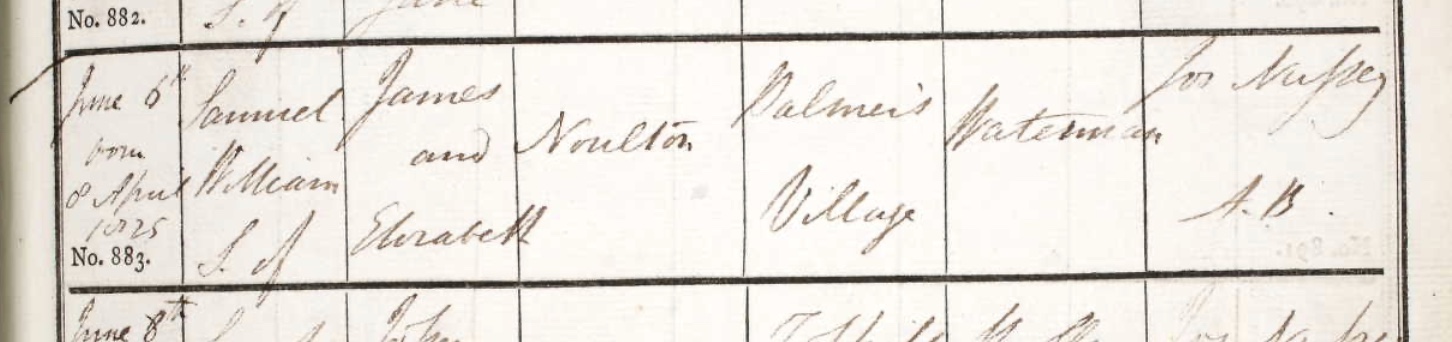 No. 882.
S. of
Jane
June 6th
born
8 April
1825
No. 883.
Samuel
William
S. of
James
and
Elizabeth
Noulton
Palmer's
Village
Waterman
Jos Nussey
A.B.
June 8th
John